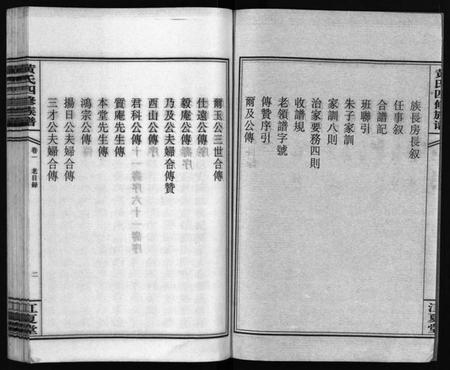 黃氏四修族譜
江夏堂
族長房長叙
任事叙
合譜記
班聯引
朱子家訓
家訓八則
治家要務四則
收譜規
老領譜字號
傳贊序引
爾及公傳
爾玉公三世合傳
仕遠公傳
毅庵公傳
乃及公夫婦合傳贊
酉山公傳
君科公傳
質庵先生傳
本堂先生傳
鴻宗公傳
揚日公夫婦合傳
三才公夫婦合傳
黃氏四修族譜
卷一 老目録
二
江夏堂